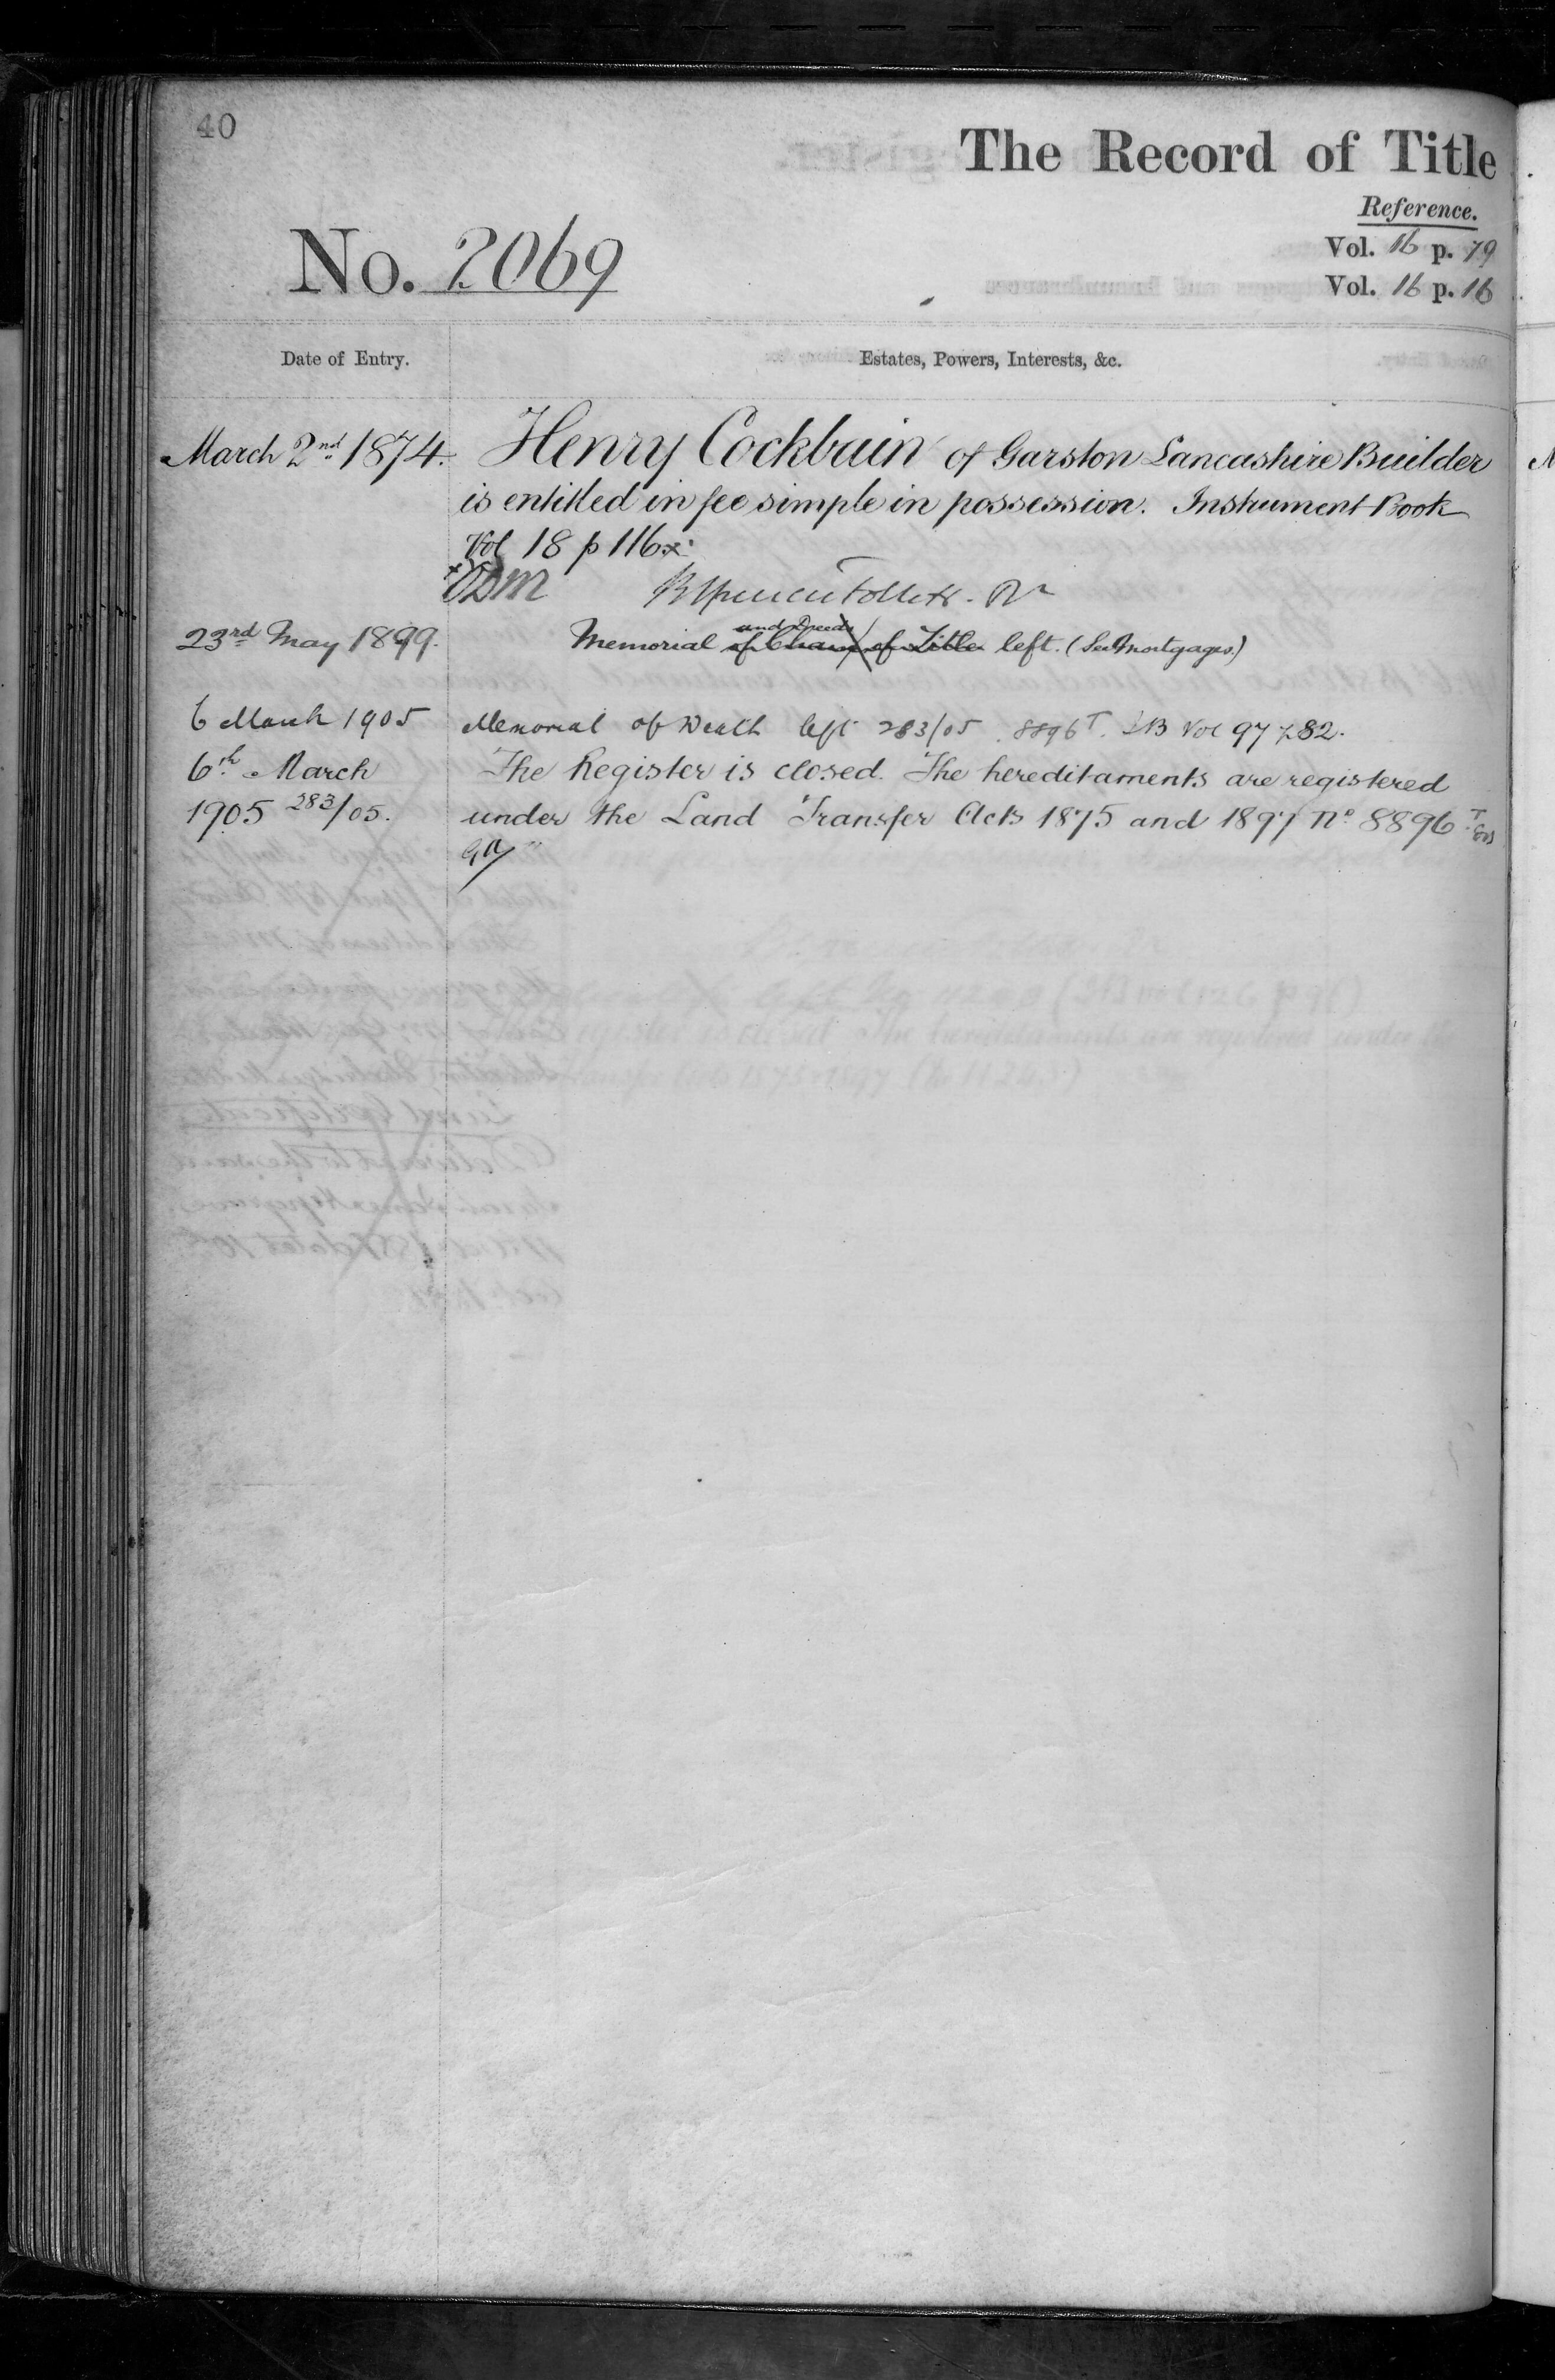 40
The Record of Title
Reference.
No. 2069
Vol. 16 p. 79
Vol. 16 p. 16
Date of Entry. Estates, Powers, Interests, &c.
March 2nd 1874. Henry Cockbain of Garston Lancashire Builder
is entitled in fee simple in possession. Instrument Book
Vol 18 p 116 x
x
and Deeds
23rd May 1899. Memorial of Charge of Title left. (See Mortgages)
6 March 1905 Memorial of Death left 283/05. 8896 T. IB Vol 97 p 82.
6th March The Register is closed. The hereditaments are registered
1905 283/05. under the Land Transfer Acts 1875 and 1897 No 8896 T